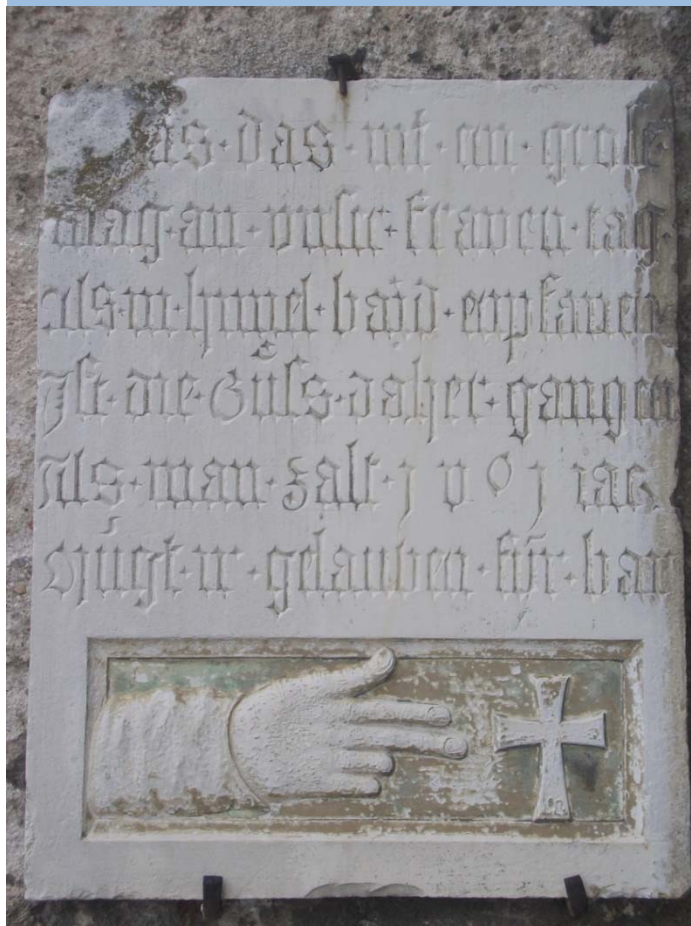 as · das · nit · ein · grose
klag · an · vnser · fraven · tag
als · in · himel · bard · enpfanen
Ist · die · Güss · daher · gangen
Als · man · zalt · 1 v 0 1 iar
Mügt · ir · gelauben · für · bar